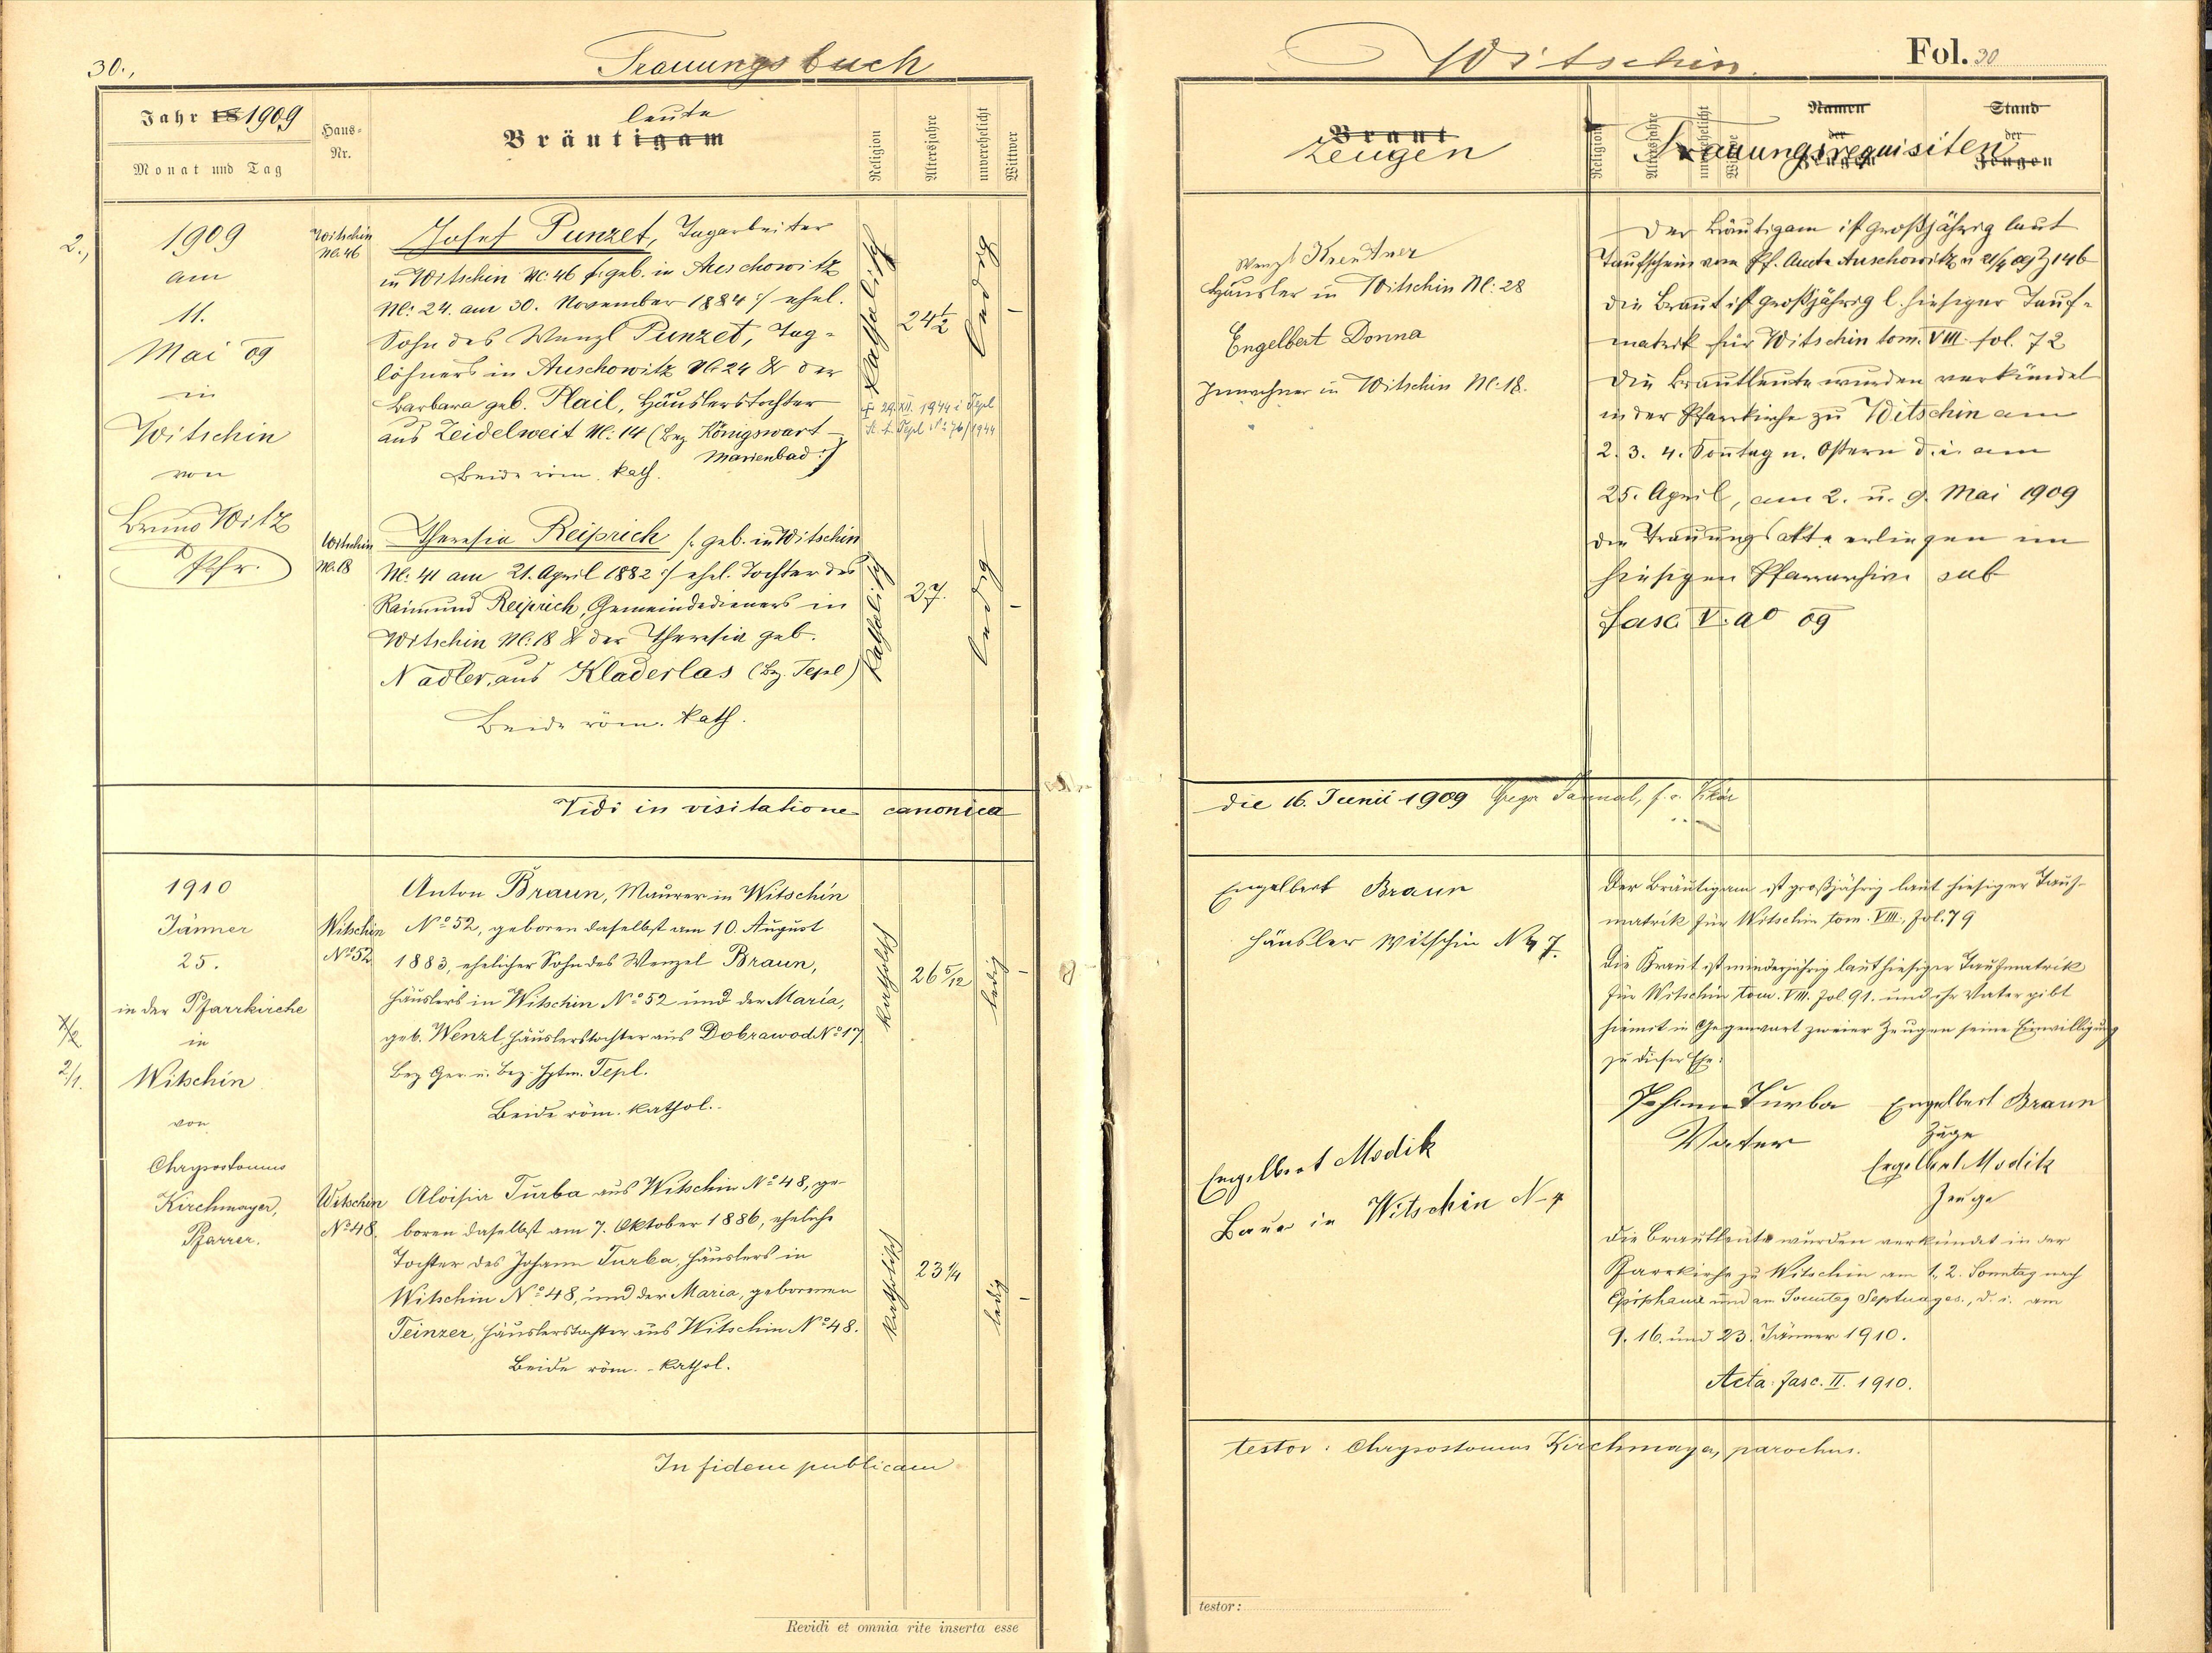 30.,
Trauungsbuch
Jahr 18 1909
Monat und Tag
Haus-
Nr.
leute
Bräutigam
Religion
Altersjahre
unverehelicht
Wittwer
2.,
1909
am
11.
Mai 09
in
Witschin
von
Bruno Witz
Pfr.
Witschin
№. 46
Josef Punzet, Tagarbeiter
in Witschin №: 46 /: geb. in Auschowitz
№: 24. am 30. November 1884 :/ ehel.
Sohn des Wenzl Punzet, Tag-
löhners in Auschowitz № 24 & der
Barbara geb. Plail, Häuslerstochter
aus Zeidelweit №: 14 (Bez. Königswart -
Marienbad :)
Beide röm. kath.
katholisch
24 1/2
ledig
-
+ 29. XII. 1944 i Tepl
St. A. Tepl № 76/1944
Witschin
№. 18
Theresia Reiprich /: geb. in Witschin
№: 41 am 21. April 1882 :/ ehel. Tochter des
Raimund Reiprich, Gemeindedieners in
Witschin №: 18 & der Theresia geb.
Nadler, aus Kladerlas (Bz. Tepl)
Beide röm. kath.
katholisch
27.
ledig
-
Vidi in visitatione canonica
1910
Jänner
25.
in der Pfarrkirche
in
Witschin
von
Chrysostomus
Kirchmayer,
Pfarrer.
2/1.
Witschin
№ 52
Anton Braun, Maurer in Witschin
№ 52, geboren daselbst am 10. August
1883, ehelicher Sohn des Wenzel Braun,
Häuslers in Witschin № 52 und der Maria,
geb. Wenzl, Häuslerstochter aus Dobrawod № 17.
Bez. Ger. u. Bez. Hptm. Tepl.
Beide röm. kathol.
katholisch
26 5/12
ledig
-
Witschin
№ 48.
Aloisia Turba aus Witschin № 48, ge-
boren daselbst am 7. Oktober 1886, eheliche
Tochter des Johann Turba, Häuslers in
Witschin № 48, und der Maria, geborenen
Teinzer, Häuslerstochter aus Witschin № 48.
Beide röm. kathol.
katholisch
23 1/4
ledig
-
In fidem publicam
Revidi et omnia rite inserta esse
Witschin
Fol. 30
Braut
Zeugen
Religion
Altersjahre
unverehelicht
Witwe
Namen
der
Zeugen
Stand
der
Zeugen
Trauungsrequisiten
Wenzl
Häusler in Witschin №: 28
Engelbert Donna
Inwohner in Witschin №: 18.
Der Bräutigam ist großjährig laut
Taufschein vom Pf. Amte Auschowitz v 21/4 09 Z 146
Die Braut ist großjährig l. hiesiger Tauf-
matrik für Witschin tom. VIII fol. 72
Die Brautleute wurden verkündet
in der Pfarrkirche zu Witschin am
2. 3. 4. Sonntag n. Ostern d. i. am
25. April, am 2. u. 9. Mai 1909
Die Trauungsakte erliegen im
hiesigen Pfarrarchive sub
Fasc V. ao 09
die 16. Junii 1909 Gregor
Engelbert Braun
Häusler Witschin N 47.
Engelbert Modik
Bauer in Witschin N-4
Der Bräutigam ist großjährig laut hiesiger Tauf-
matrik für Witschin tom. VIII., fol. 79
Die Braut ist minderjährig laut hiesiger Taufmatrik
für Witschin tom. VIII. fol. 91. und ihr Vater gibt
hiemit in Gegenwart zweier Zeugen seine Einwilligung
zu dieser Ehe:
Johann Turba Engelbert Braun
Vater Zeuge
Engelbert Modik
Zeuge
Die Brautleute wurden verkündet in der
Pfarrkirche zu Witschin am 1., 2. Sonntag nach
Epiphanie und am Sonntag Septuages., d. i. am
9. 16. und 23. Jänner 1910.
Acta: fasc. II. 1910.
testor: Chrysostomus Kirchmayer, parochus.
testor: